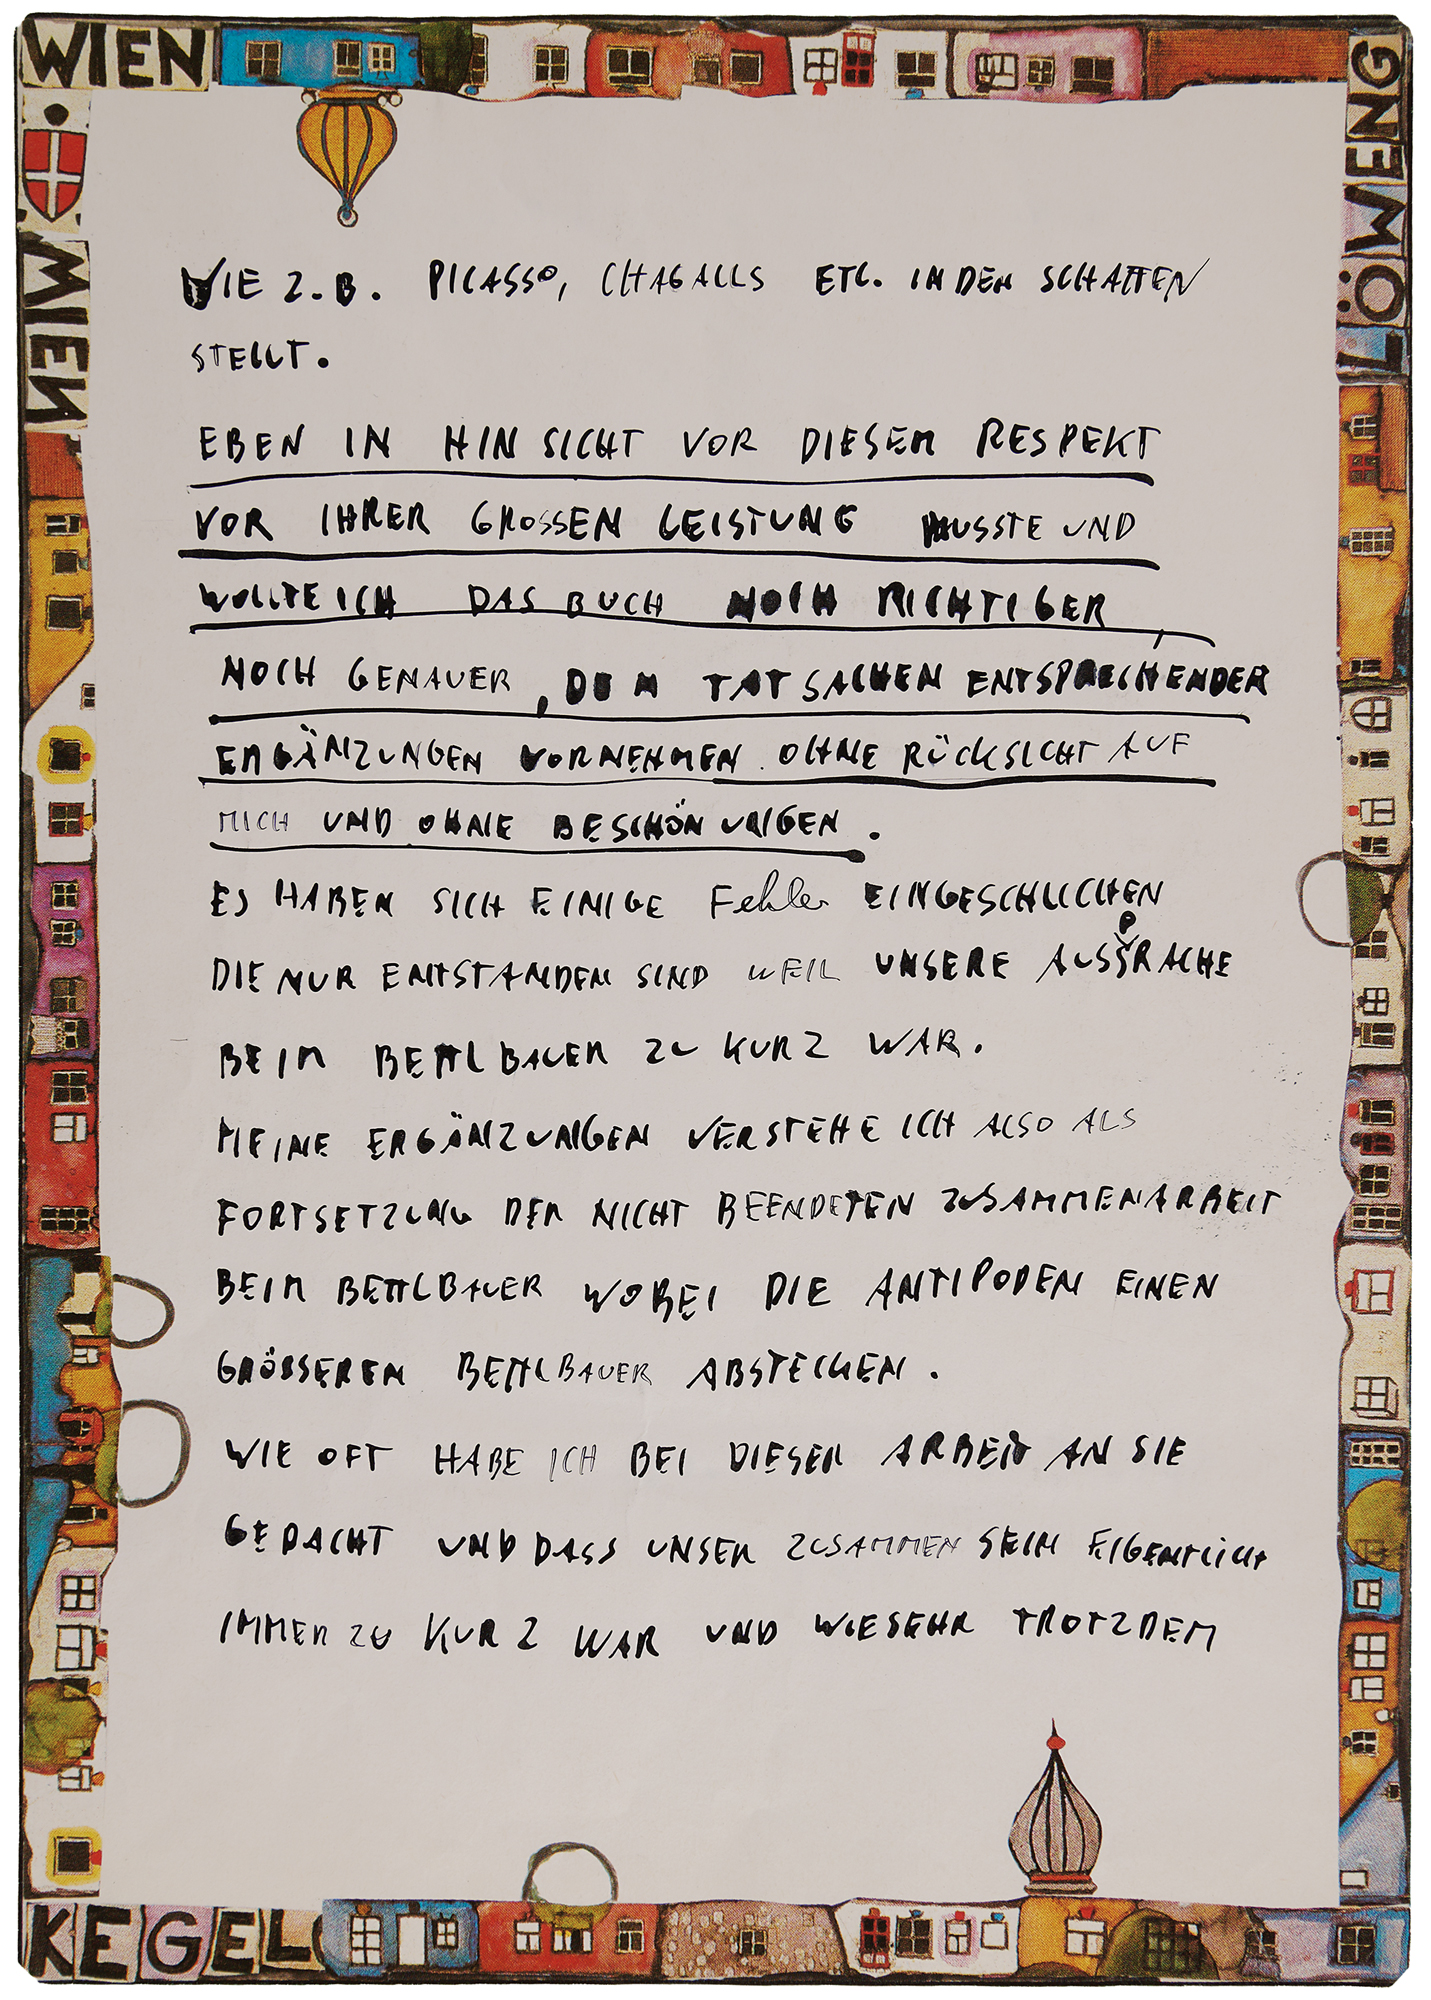 WIEN
WIEN
LÖWENG
WIE Z.B. PICASSO, CHAGALLS ETC. IN DEN SCHATTEN
STELLT.
EBEN IN HINSICHT VOR DIESEM RESPEKT
VOR IHRER GROSSEN LEISTUNG MUSSTE UND
WOLLTE ICH DAS BUCH NOCH RICHTIGER,
NOCH GENAUER, DEN TATSACHEN ENTSPRECHENDER
ERGÄNZUNGEN VORNEHMEN. OHNE RÜCKSICHT AUF
MICH UND OHNE BESCHÖNUNGEN.
ES HABEN SICH EINIGE Fehler EINGESCHLICHEN
DIE NUR ENTSTANDEN SIND WEIL UNSERE AUSSPRACHE
BEIM BETTLBAUER ZU KURZ WAR.
MEINE ERGÄNZUNGEN VERSTEHE ICH ALSO ALS
FORTSETZUNG DER NICHT BEENDETEN ZUSAMMENARBEIT
BEIM BETTLBAUER WOBEI DIE ANTIPODEN EINEN
GRÖSSEREN BETTLBAUER ABSTECKEN.
WIE OFT HABE ICH BEI DIESER ARBEIT AN SIE
GEDACHT UND DASS UNSER ZUSAMMENSEIN EIGENTLICH
IMMER ZU KURZ WAR UND WIE SEHR TROTZDEM
KEGEL